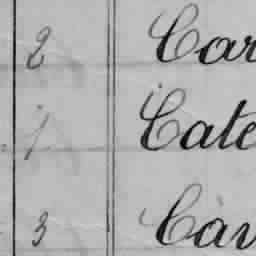 2 Car
1 Cate
3 Cav